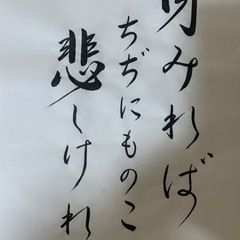 月みれば
ちぢにものこ
悲しけれ